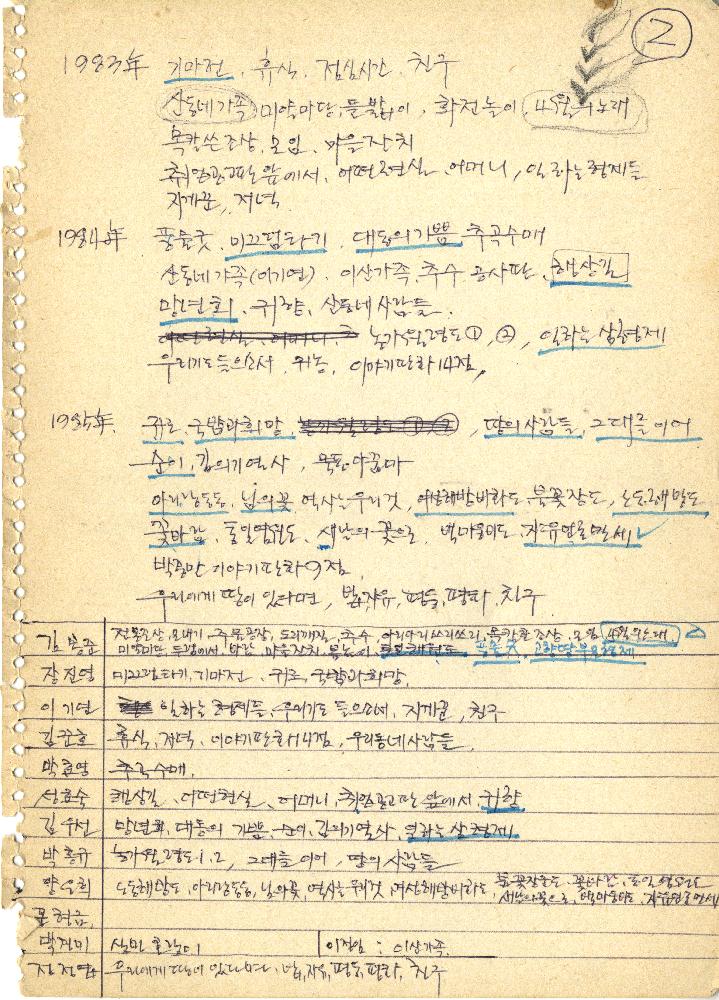 ②
1983年 기마전, 휴식, 점심시간, 친구
산동네가족 미얄마당, 들밥이, 화전놀이, 4월의노래
목칼쓴조상, 모임, 마을잔치
취업공고판앞에서, 어떤현실, 어머니, 일하는형제들
지게꾼, 저녁
1984年 풍물굿, 미끄럼타기, 대동의기쁨, 추곡수매
산동네가족(이기연), 이산가족, 추수 공사판, 행상길
망년회, 귀향, 산동네사람들,
어떤현실, 어머니, 농가월령도①,②, 일하는 삼형제
우리가도들으소서, 귀농, 이야기판화14점,
1985年. 귀로, 국밥과희망, 농가월령도①②, 땅의사람들, 그대들이어
순이, 김의기열사, 목판
아리랑동동, 님의꽃, 역사는우리것, 여성해방비하도, 북꽃장도, 노동해방도
꽃바람, 통일염원도, 새날의꽃으로, 벽마을비도, 자유언론만세
박홍만 이야기판화9점
우리에게 땅이 있다면, 밥, 자유, 평등, 평화, 친구
김봉준 전통조상, 모내기, 주물공장, 도리깨질, 추수, 아리아리쓰리쓰리, 목칼쓴조상, 모임, 4월의노래
미얄마당, 두렁에서, 마을잔치, 풍물굿, 고향땅부모형제
장진영 미끄럼타기, 기마전, 귀로, 국밥과희망,
이기연 일하는 형제들, 우리가도 들으소서, 지게꾼, 친구
김준호 휴식, 저녁, 이야기판화14점, 우리동네사람들
박흥영 추곡수매,
성효숙 행상길, 어떤현실, 어머니, 취업공고판 앞에서, 귀향
김우선 망년회, 대동의 기쁨 순이, 김의기열사, 일하는 삼형제
박홍규 농가월령도1.2, 그대들 이어, 땅의 사람들
양은희 노동해방도, 아리랑동동, 님의꽃, 역사는우리것, 여성해방비하도, 북꽃장도, 꽃바람, 통일염원도
새날의꽃으로, 벽마을비도, 자유언론만세
문현금,
백진미 실민 이정임 : 이산가족.
우리에게 땅이 있다면, 밥, 자유, 평등, 평화, 친구